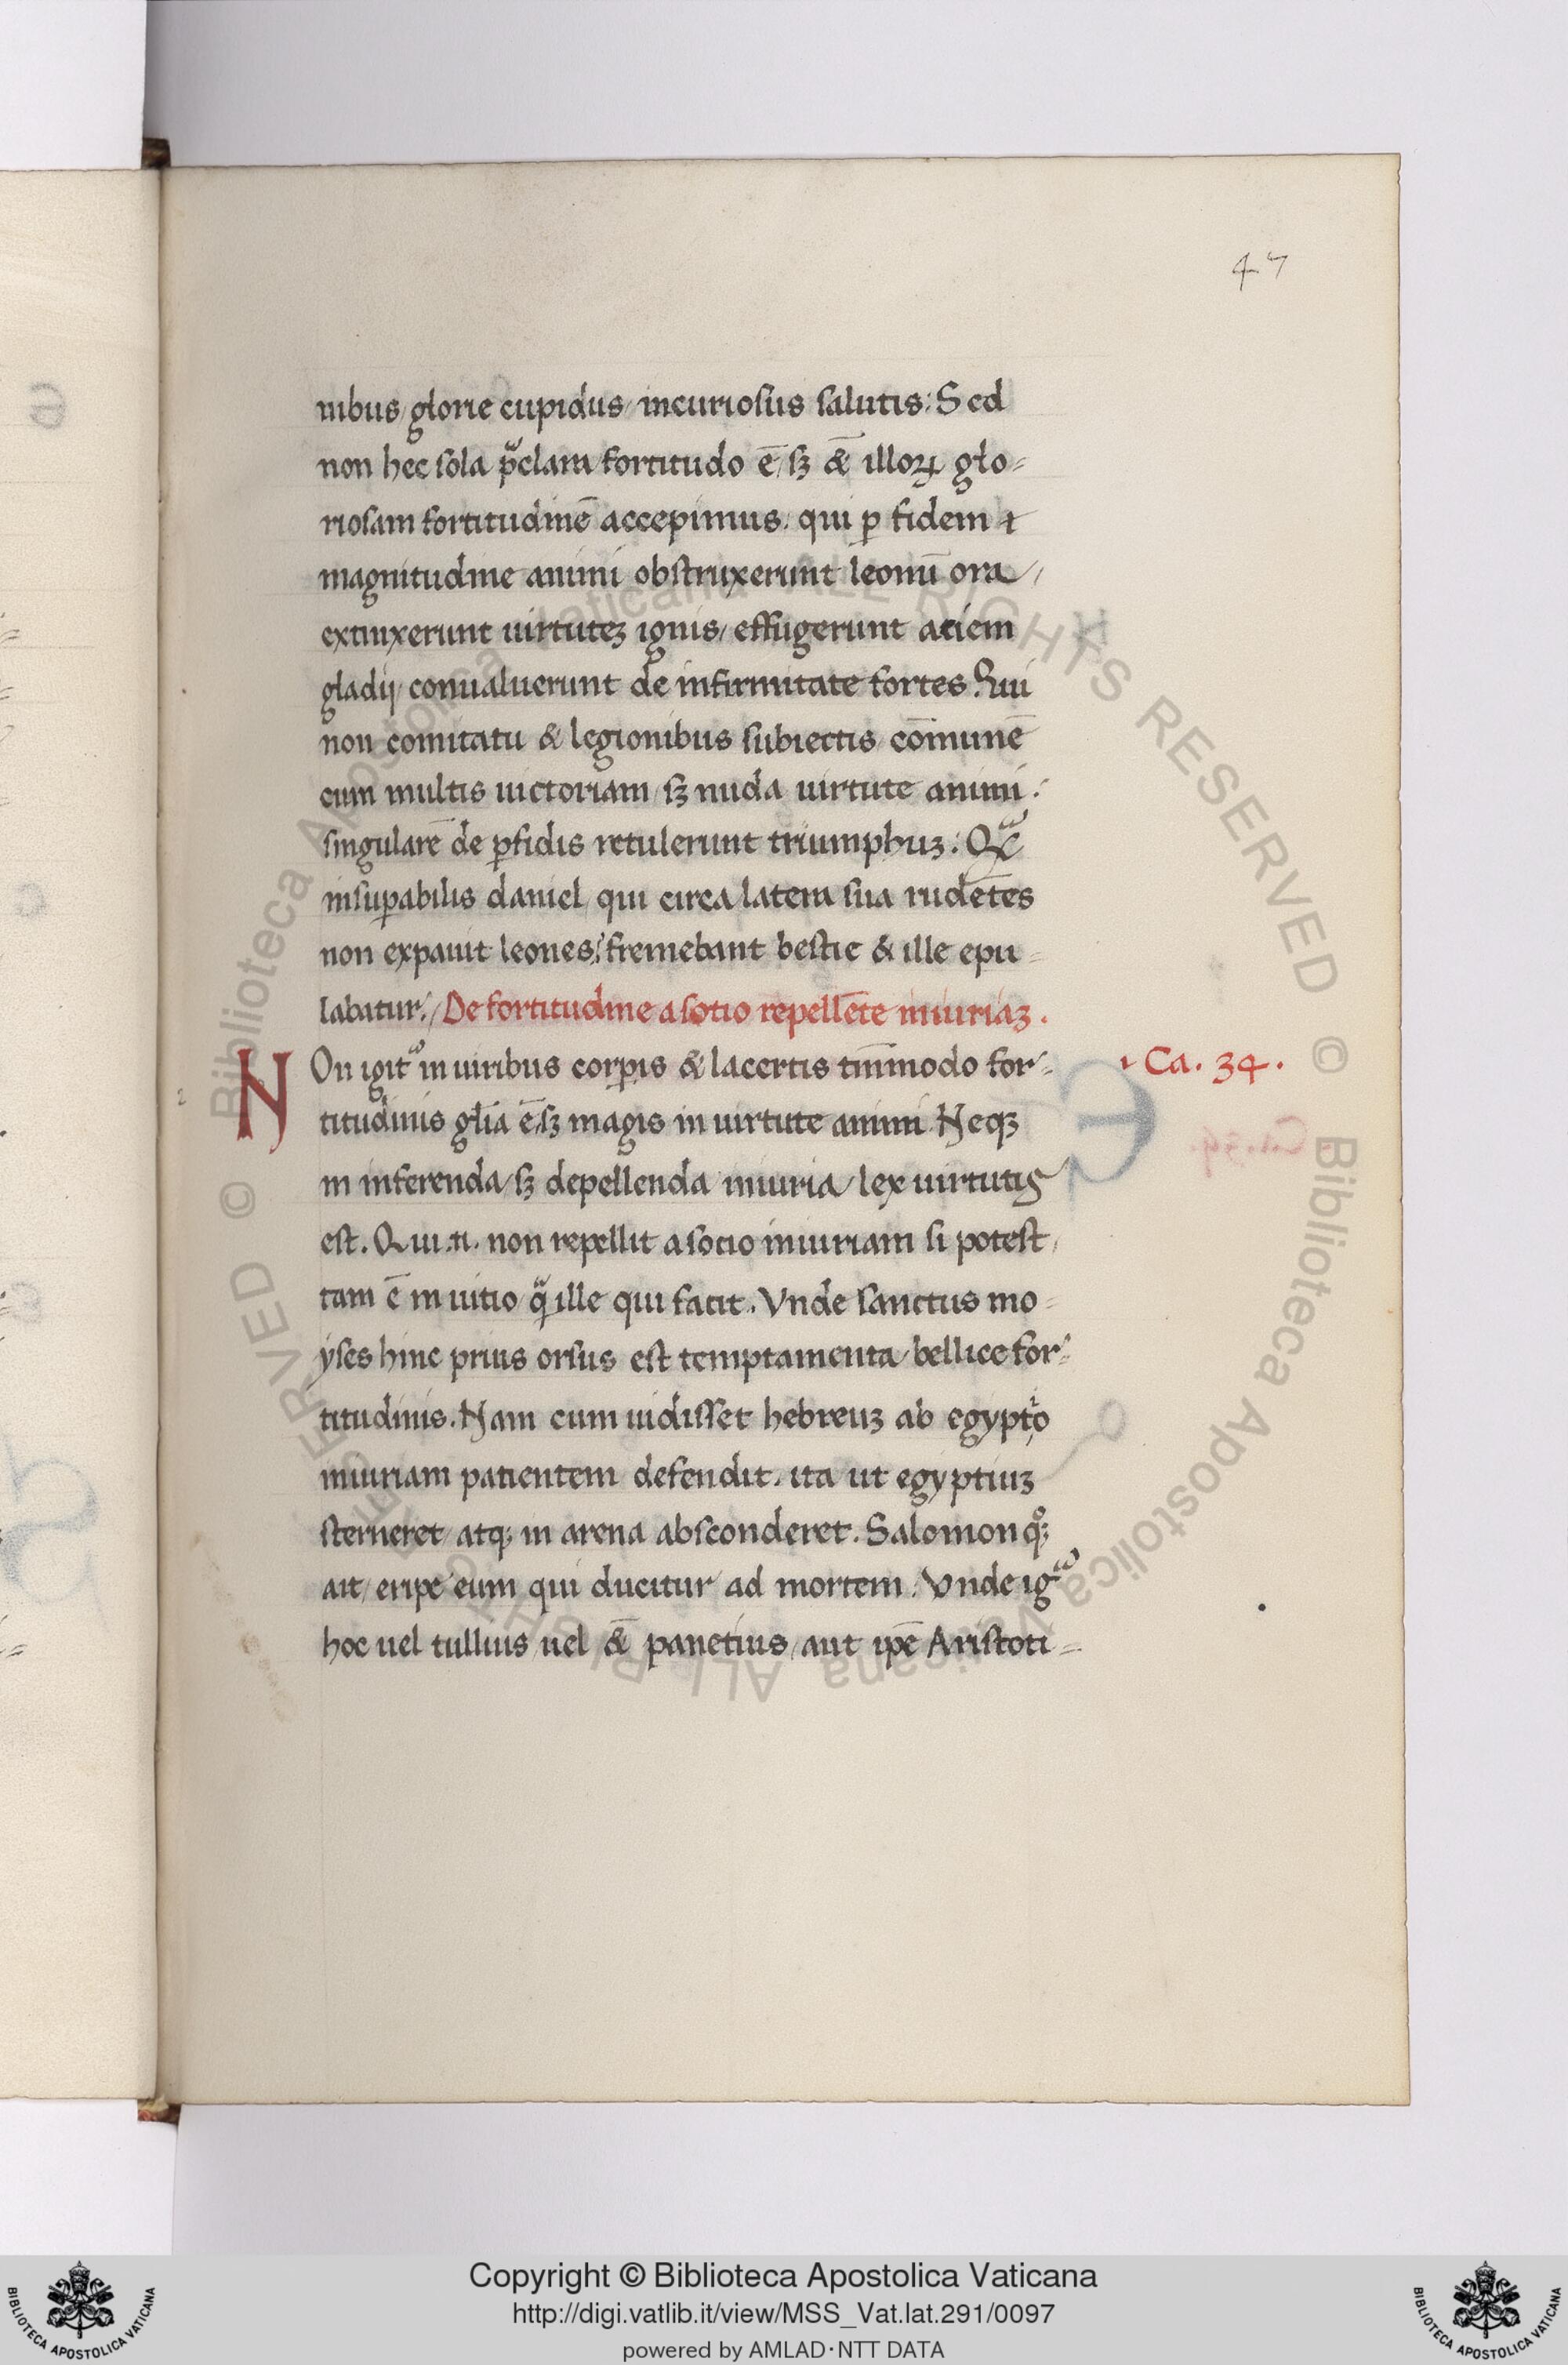 47
nibus/ glorie cupidus/ incuriosus salutis: Sed
non hec sola p̃clara fortitudo ē/ sꝫ & illoꝝ glo=
riosam fortitudinē accepimus. qui ꝑ fidem ⁊
magnitudine animi obstruxerunt leonū ora/
extinxerunt uirtuteꝫ ignis/ effugerunt aciem
gladij/ conualuerunt de infirmitate fortes. Qui
non comitatu & legionibus subiectis/ cōmunē
cum multis uictoriam/ sꝫ nuda uirtute animi:
singularē de ꝑfidis retulerunt triumphuꝫ: Qᷓ
insuꝑabilis daniel/ qui circa latera sua rudētes
non expauit leones/ fremebant bestie & ille epu=
labatur./ De fortitudine a sotio repellēte iniuriaꝫ.
NOn igit᷑ in uiribus corꝑis & lacertis tm̄modo for=
Ca. 34.
titudinis gl̄ia ē/ sꝫ magis in uirtute animi. Neqꝫ
in inferenda/ sꝫ depellenda iniuria/ lex uirtutis
est. Qui .n. non repellit a socio iniuriam si potest/
tam ē in uitio/ qᷓ ille qui facit. Vnde sanctus mo=
yses hinc prius orsus est temptamenta/ bellice for=
titudinis. Nam cum uidisset hebreuꝫ ab egyptio
iniuriam patientem defendit. ita ut egyptiuꝫ
sterneret/ atqꝫ in arena absconderet. Salomon qͦꝫ
ait/ eripe eum qui ducitur ad mortem. Vnde igᷓ
hoc uel tullius/ uel & panetius/ aut ip̄e Aristoti=
Copyright © Biblioteca Apostolica Vaticana
http://digi.vatlib.it/view/MSS_Vat.lat.291/0097
powered by AMLAD·NTT DATA
BIBLIOTECA APOSTOLICA VATICANA
BIBLIOTECA APOSTOLICA VATICANA